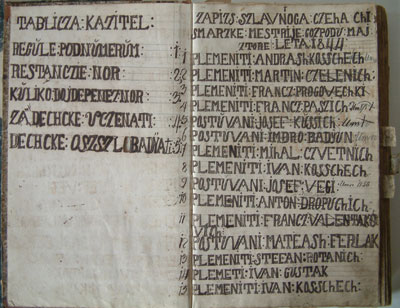 TABLICZA: KAZITEL:
REGULE: PODNŬMERŬM: 1:
RESTANCZIE: NOR: 2
KŬLIKO: DOIDE PENEZ NOR: 3
ZA: DECHCKE: VCZENATI: 4
DECHCKE: OSZSZLOBAĎATI: 5
ZAPIZS: SZLAVNOGA: CZEHA CHI
SMARZKE: MESTRIJE: GOZPODU: MAJ
ZTORE LETA 1844
1 PLEMENITI: ANDRASH KOSSCHECH:
2 PLEMENITI: MARTIN: CZELENICH:
3 PLEMENITI: FRANCZ: PROGOVECHKI
4 PLEMENITI: FRANCZ: PASZICH:
5 POSTŬVANI: JOSEF: KŬSSICH:
6 POSTŬVANI: IMBRO: BADJUN:
7 PLEMENITI: MIHAL: CZVETNICH
8 PLEMENITI: IVAN: KOSSCHECH:
9 POSTUVANI: JOSEF: VEGI:
10 PLEMENITI: ANTON: DROPUCHICH:
11 PLEMENITI: FRANCZ: VALENTAKO
VICH:
12 POSTUVANI: MATEASH: FERLAK
13 PLEMENITI: STEFAN: ROTANICH:
14 PLEMETI: IVAN: GUSTAK
15 PLEMENITI: IVAN: KOSSCHECH: